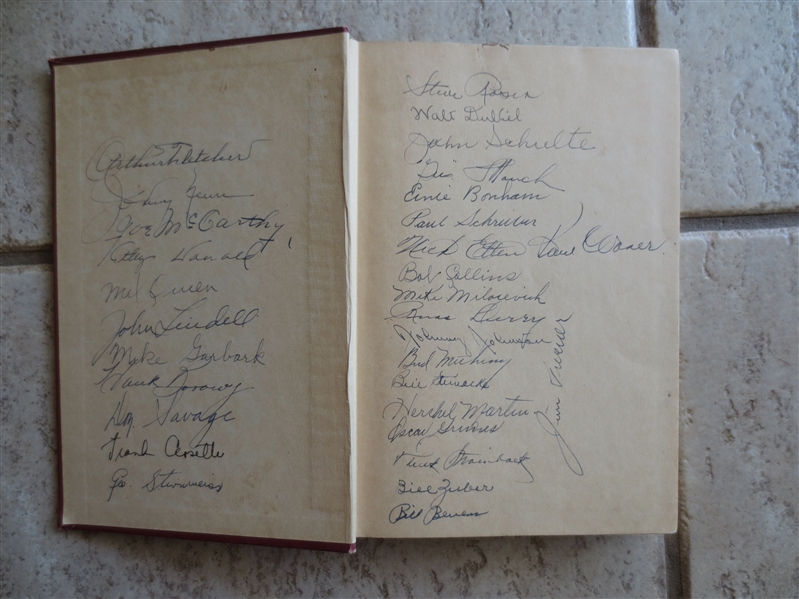 Arthur Fletcher
Johnny Neun
Joe McCarthy
Mel Queen
John Lindell
Mike Garbark
Hank Borowy
Don Savage
Frank Crosetti
Geo. Stirnweiss
Steve Roser
Walt Dubiel
John Schulte
Ernie Bonham
Paul Schreiber
Nick Etten Paul Waner
Bob Collins
Mike Milosevich
Russ Derry
Johnny Johnson
Bud Metheny
Herschel Martin
Oscar Grimes
Jim Turner
Bill Zuber
Bill Bevens